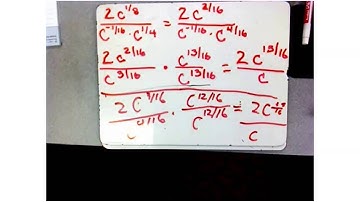 2c^1/8 / c^-1/16 · c^1/4 = 2c^2/16 / c^-1/16 · c^4/16
2c^2/16 / c^3/16 · c^13/16 / c^13/16 = 2c^15/16 / c
2c^ /16 / c^ /16 · c^12/16 / c^12/16 = 2c / c